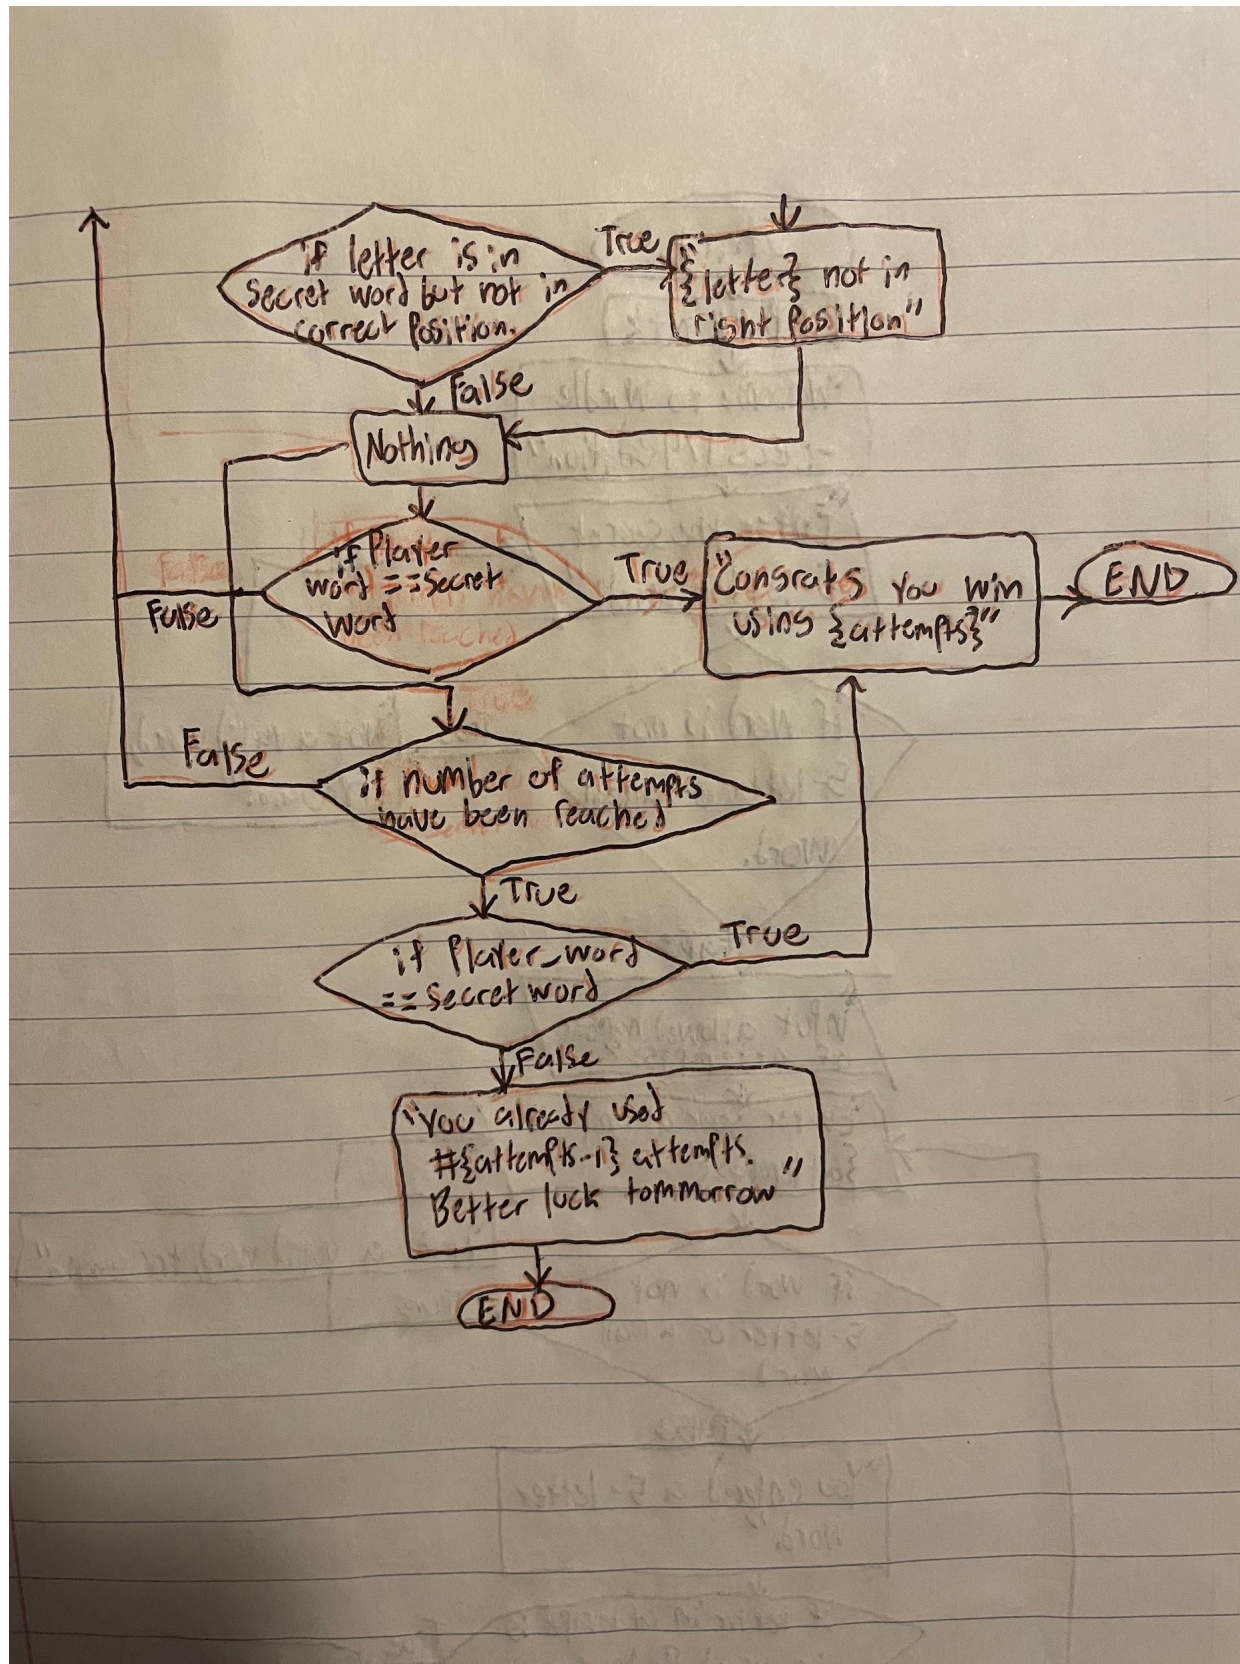 if letter is in
secret word but not in
correct position.
True
"
{letter} not in
right Position"
False
Nothing
if Player
word ==secret
word
True
"Congrats you win
using {attempts}"
END
False
False
False
if number of attempts
have been reached
True
if Player_word
==secret word
True
False
"You already used
#{attempts-1} attempts.
Better luck tommorrow"
END